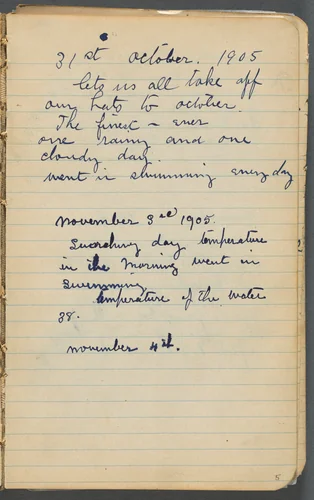 31st october. 1905
lets us all take off
our hats to october.
The finest – ever
one rainy and one
cloudy day.
went in swimming every day
november 3rd 1905.
day temperature
in the morning went in
swimming
temperature of the water
38.
november 4th.
5